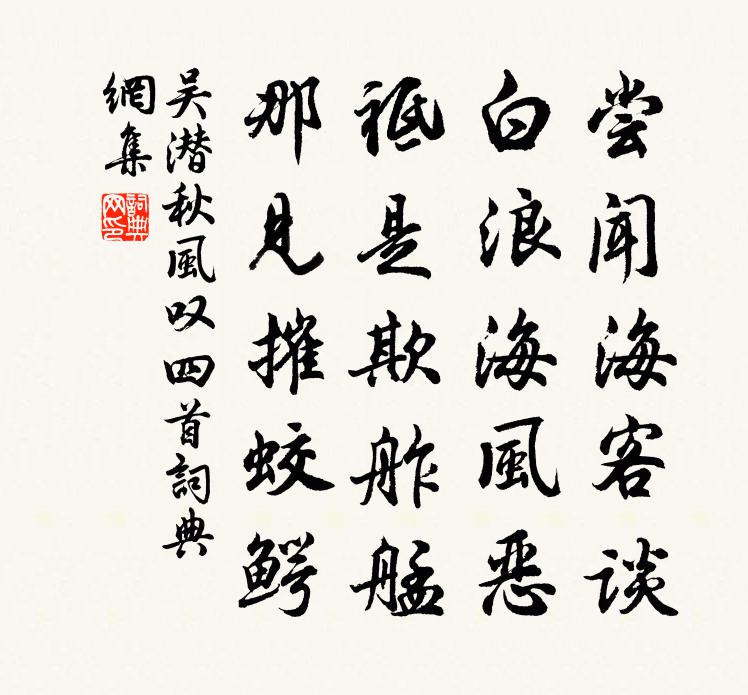 尝闻海客谈
白浪海風恶
祇是欺舴艋
那見摧蛟鳄
吴潜秋風叹四首詞典
網集
詞典
网印